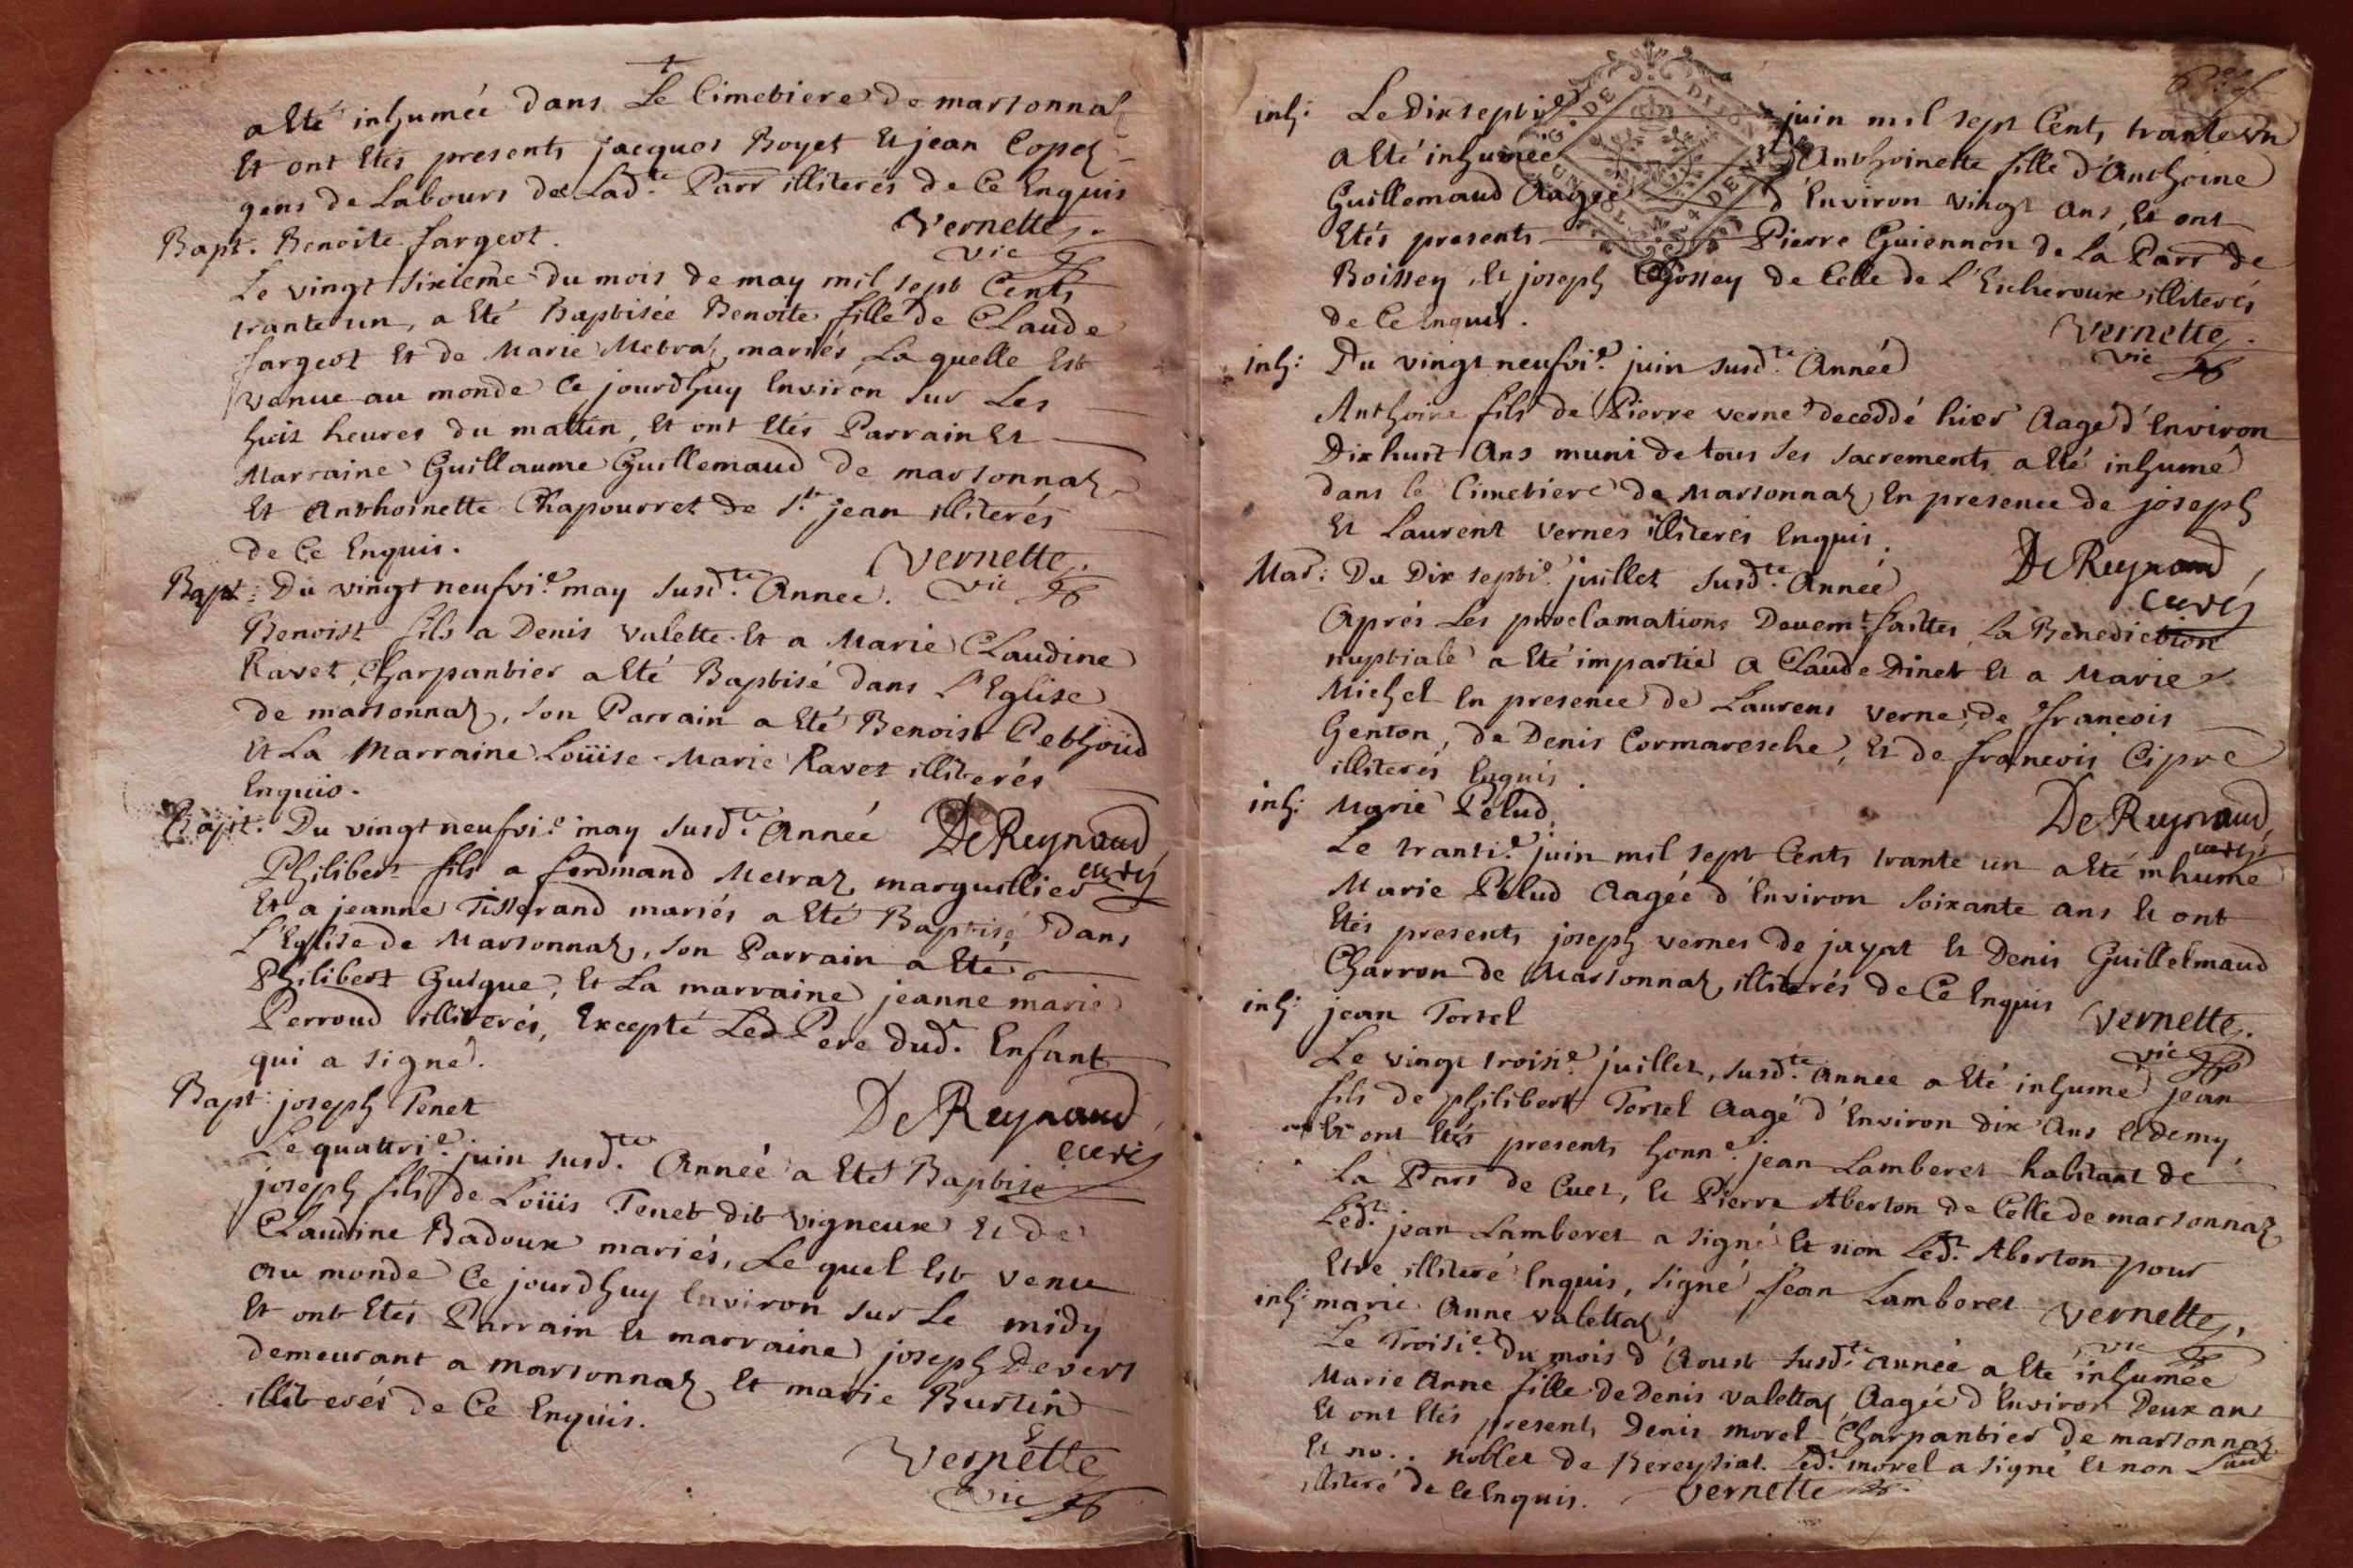 a Eté inhumée dans Le Cimetiere de marsonnaz
Et ont Etés presents jacques Boyet Et jean Copel
gens de Labours de Lad.te Parr illiterés de Ce Enquis
Vernette
vic
Bapt. Benoite fargeot.
Le vingt sixieme du mois de may mil sept Cents
trante un, a Eté Baptisée Benoite fille de CLaude
fargeot Et de Marie Metraz mariés, La quelle Est
venue au monde Ce jourdhuy Environ sur Les
huit heures du mattin, Et ont Etés Parrain Et
Marraine Guillaume Guillemaud de marsonnaz
Et Anthoinette Chapourret de S.t jean illiterés
de Ce Enquis.
Vernette
vic
Bapt: Du vingt neufvi.e may susd.te Année.
Benoist fils a Denis Valette Et a Marie CLaudine
Ravet, Charpantier a Eté Baptisé dans L'Eglise
de marsonnaz, son Parrain a Eté Benoist Petthoüd
Et La Marraine Loüise Marie Ravet illiterés
Enquis.
Bapt. Du vingt neufvi.e may susd.te Année
De Reynaud
curé
Philibert fils a ferdinand Metraz marguillier
Et a jeanne Tisserand mariés a Eté Baptisé dans
L'Eglise de Marsonnaz, son Parrain a Eté
Philibert Guigue, Et La marraine jeanne marie
Perroud illiterés, Excepté Led. Pere dud. Enfant
qui a signé.
Bapt: joseph Tenet
De Reynaud
curé
Le quattri.e juin susd.te Année a Eté Baptisé
joseph fils de Loüis Tenet dit vigneux Et de
CLaudine Badoux mariés, Le quel Est venu
au monde Ce jourdhuy Environ sur Le midy
Et ont Etés Parrain Et marraine joseph Devert
demeurant a marsonnaz Et marie Burtin
illiterés de Ce Enquis.
Vernette
vic
inh: Le Dix septi.e juin mil sept Cents trante un
a Eté inhumée Anthoinette fille d'Anthoine
Guillemaud Aagée d'Environ vingt ans, Et ont
Etés presents Pierre Guionnon de La Parr de
Boissey, Et joseph Chossey de Celle de L'Escheroux illiterés
de Ce Enquis.
Vernette
vic
inh: Du vingt neufvi.e juin susd.te Année
Anthoine fils de Pierre verne deceddé hier Aagé d'Environ
Dix huit Ans muni de tous ses sacrements a Eté inhumé
dans le Cimetiere de Marsonnaz En presence de joseph
Et Laurent vernes illiterés Enquis.
De Reynaud
curé
Mar: Du Dix septi.e juillet susd.te Année
Aprés Les proclamations Deuem.t faittes, La Benediction
nuptiale a Eté impartie a CLaude Dinet Et a Marie
Michel En presence de Laurens verne, de francois
Genton, de Denis Cormaresche, Et de francois Cipre
illiterés Enquis.
inh: Marie Pelud.
De Reynaud
curé
Le tranti.e juin mil sept Cents trante un a Eté inhumé
Marie Pelud Aagée d'Environ soixante ans Et ont
Etés presents joseph vernes de jayat Et Denis Guillelmaud
Charron de Marsonnaz illiterés de Ce Enquis
Vernette
vic
inh: jean Tortel
Le vingt troisi.e juillet, susd.te Année a Eté inhumé jean
fils de philibert Tortel Aagé d'Environ dix Ans Et demy,
Et ont Etés presents honn.e jean Lamberet habitant de
La Parr de Cuet, Et Pierre Aberton de Celle de marsonnaz
Led.t jean Lamberet a signé Et non Led.t Aberton pour
Etre illiteré Enquis, signé Jean Lamberet
Vernette
vic
inh: marie Anne valettaz
Le Troisi.e du mois d'Aoust susd.te année a Eté inhumée
Marie Anne fille de Denis valettaz, Aagée d'Environ Deux ans
Et ont Etés presents Denis morel Charpantier de marsonnaz
Et no.. nobles de Bereyziat. Led.t morel a signé Et non
illiteré de Ce Enquis. Vernette